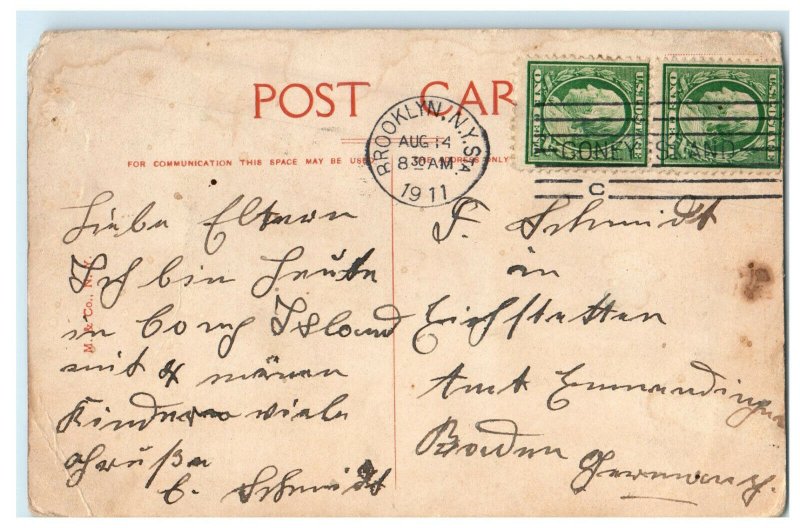 POST CAR
BROOKLYN, N.Y. STA
AUG 14
8 30 AM
1911
CONEY ISLAND
C
U.S. POSTAGE
ONE CENT
U.S. POSTAGE
ONE CENT
FOR COMMUNICATION THIS SPACE MAY BE USED
THE ADDRESS ONLY
M. & Co., N.Y.
Liebe Eltern
Ich bin heute
in Cony Island
mit 4 meinen
Kindern viele
Grüße
E. Schmidt
F. Schmidt
in
Eichstetten
Amt Emmendingen
Baden
Germany.